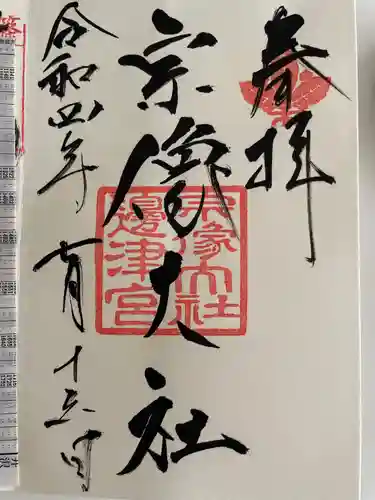 奉拝
宗像大社
宗像大社
邊津宮
令和四年
十月
十五日